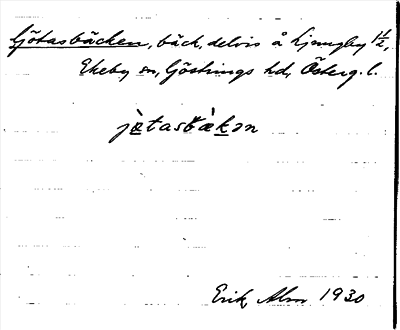 Gjötasbäcken, bäck, delvis å Ljungby 1 1/2,
Ekeby sn, Göstrings hd, Österg. l.
jètasbàkən
Erik Alm 1930